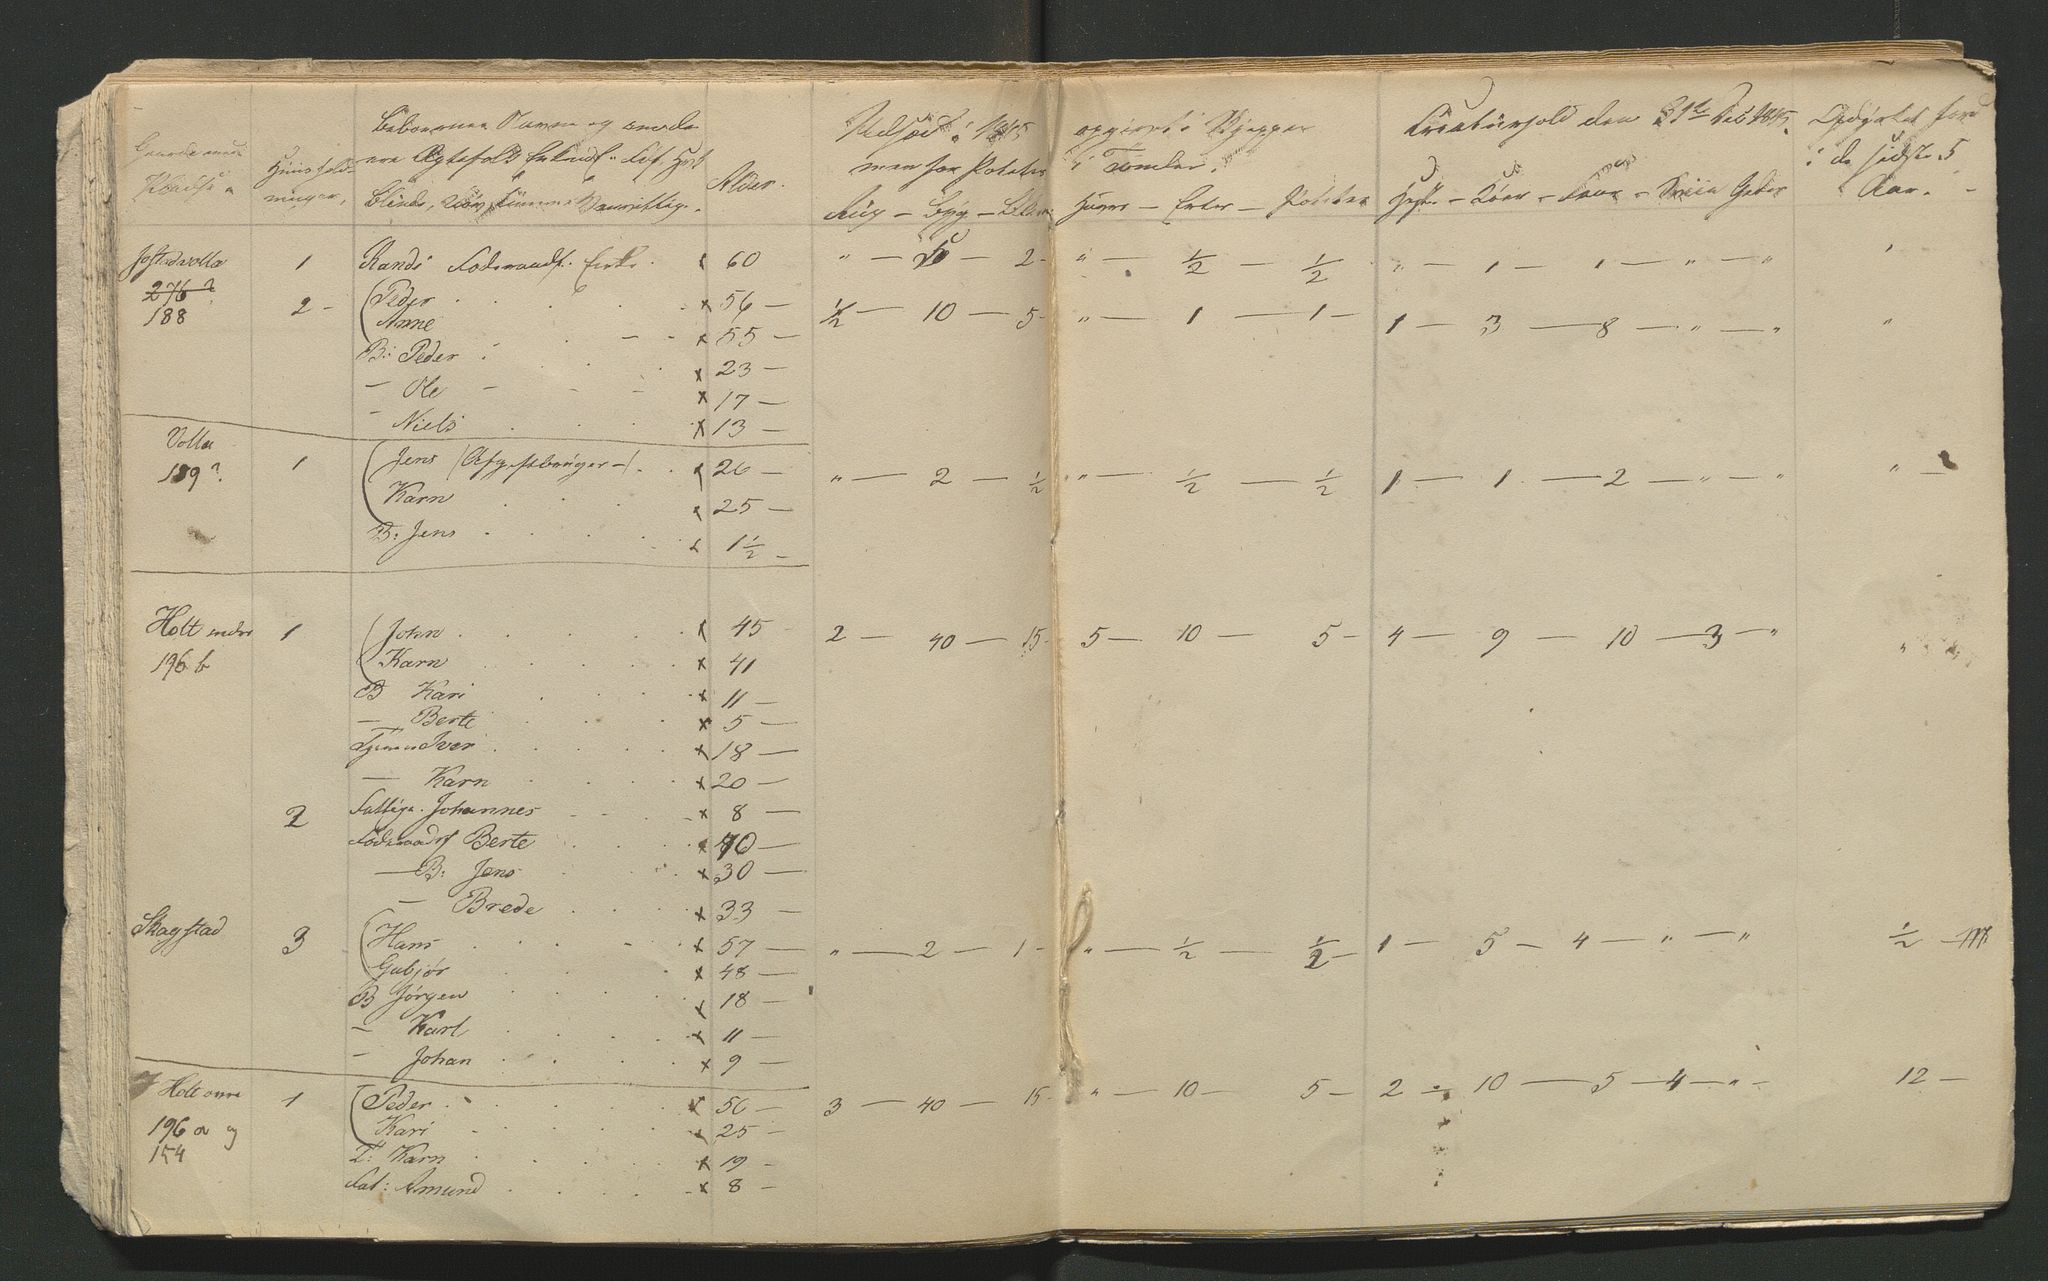 Huushold-
ninger,
Beboernes Navne og
Alder.
Udsæd i 1845
i Tønder.
Rug — Byg —
Erter — Poteter
Creaturhold den
Heste — Køer — Faar — Sviin Geder
i de sidste 5
Aar.
1 Randi Føderaadsf. Enke × 60 " — 5 — 2 — " — ½ — ½ " — 1 — 1 — " — "
276
188
2 – Peder × 56 — ½ — 10 — 5 — " — 1 — 1 — 1 — 3 — 8 — " — " "
Anne × 55 —
B: Peder × 23 —
— Ole × 17 —
— Niels × 13 —
Volla 1 Jens × 26 — " — 2 — ½ " — ½ — ½ 1 — 1 — 2 — " — " " —
189?
Karn × 25 —
B: Jens × 1½ —
Holt nedre 1 John × 45 2 — 40 — 15 — 5 — 10 — 5 — 4 — 9 — 10 — 3 — " "
196 b
Karn × 41
B Kari × 11 —
— Berte × 5 —
Tjener Iver × 18 —
— Karn × 20 —
2 Fattige. Johannes × 8 —
Føderaadsf Berte × 70 —
— B: Jens × 30 —
— Brede × 33 —
Skagstad 3 Hans × 57 — " — 2 — 1 — " — ½ — ½ — 1 — 5 — 4 — " — " ½ —
Gubjør × 48 —
B Jørgen × 18 —
— Karl × 11 —
— Johan × 9 —
Holt øvre 1 Peder × 56 — 3 — 40 — 15 — " — 10 — 5 — 2 — 10 — 5 — 4 — " — 12 —
196 a og
154
Kari × 25 —
T: Karn × 19 —
Fat: Amund × 8 —